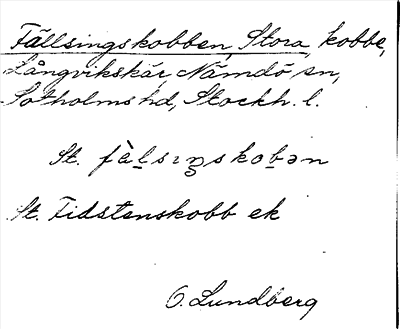 Fällsingskobben, Stora, kobbe,
Långvikskär, Nämdö sn,
Sotholms hd, Stockh. l.
St. fàḷsıŋskoḅən
St. Fidstenskobb ek
O. Lundberg